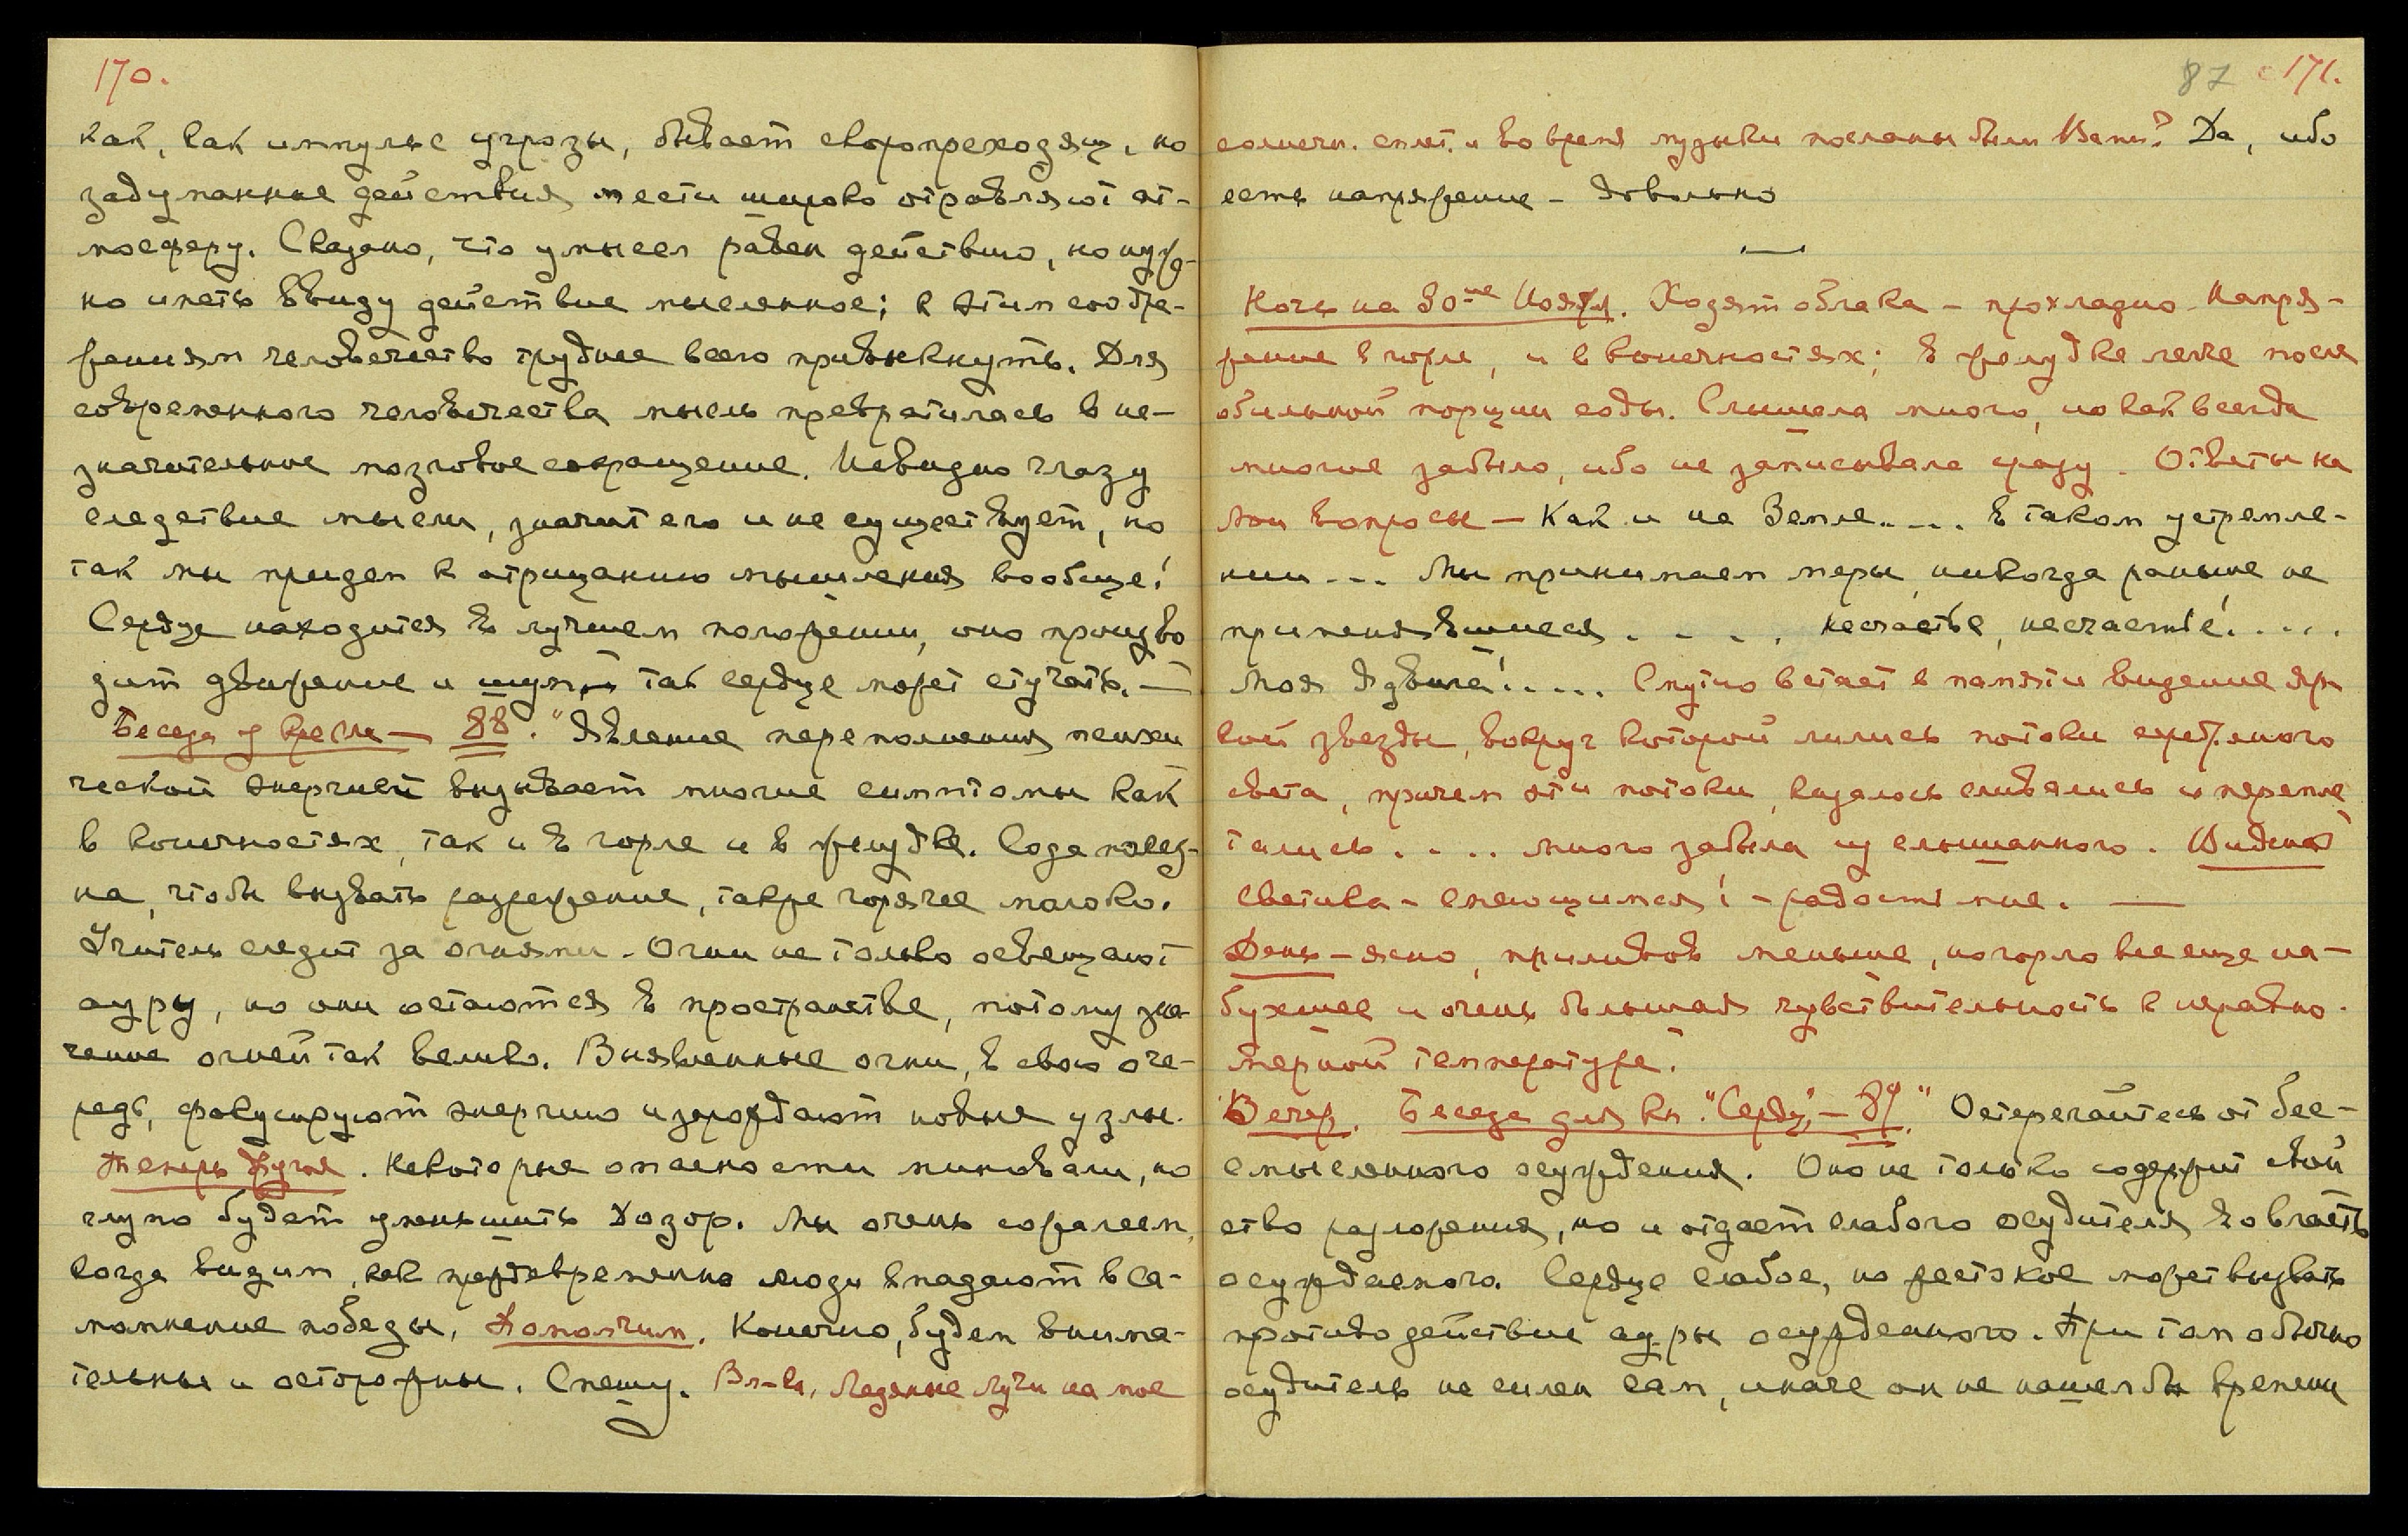 170.
как, как импульс угрозы, бывает скоропреходящ, но
задуманные действия мести широко отравляют ат-
мосферу. Сказано, что умысел равен действию, но нуж-
но иметь ввиду действие мысленное; к этим сообра-
жениям человечество труднее всего привыкнуть. Для
современного человечества мысль превратилась в не-
значительное мозговое сокращение. Невидно глазу
следствие мысли, значит его и не существует, но
так мы придем к отрицанию мышления вообще!
Сердце находится в лучшем положении, оно произво
дит движение и шум, так сердце может стучать. —
Беседа у Кресла — 88. "Явление переполнения психи
ческой энергией вызывает многие симптомы как
в конечностях, так и в горле и в желудке. Сода полез-
на, чтобы вызвать разрежение, также горячее молоко.
Учитель следит за огнями. Огни не только освещают
ауру, но они остаются в пространстве, потому зна-
чение огней так велико. Выявленные огни, в свою оче-
редь, фокусируют энергию и зарождают новые узлы.
Теперь другое. Некоторые опасности миновали, но
глупо будет уменьшить Дозор. Мы очень сожалеем,
когда видим, как преждевременно люди впадают в са-
момнение победы. Помолчим. Конечно, будем внима-
тельны и осторожны. Спешу. Вл-ка, Ледяные Лучи на мое
87 171.
солнечн. сплет. и во время музыки посланы были Вами? Да, ибо
есть напряжение - Довольно
—
Ночь на 30ое Ноября. Ходят облака - прохладно. Напря-
жение в горле, и в конечностях; в желудке легче после
обильной порции соды. Слышала много, но как всегда
многие забыла, ибо не записывала сразу. Ответы на
мои вопросы — Как и на Земле.... в таком устремле-
нии... Мы принимаем меры, никогда раньше не
применявшиеся . . . . несчастье, несчастье! ....
Моя Ядвига! ..... Смутно встает в памяти видение яр
кой звезды, вокруг которой лились потоки серебряного
света, причем эти потоки, казалось сливались и перепле
тались .... много забыла из слышанного. Видела
Светика - смеющимся! - радостнее. —
День - ясно, приливов меньше, но горло все еще на-
бухшее и очень большая чувствительность к неравно-
мерной температуре.
Вечер. Беседа для кн. "Сердце," — 89." Остерегайтесь от бес-
смысленного осуждения. Оно не только содержит свой
ство разложения, но и отдает слабого осудителя во власть
осуждаемого. Сердце слабое, но жестокое может вызвать
противодействие ауры осужденного. При том обычно
осудитель не силен сам, иначе он не нашел бы времени